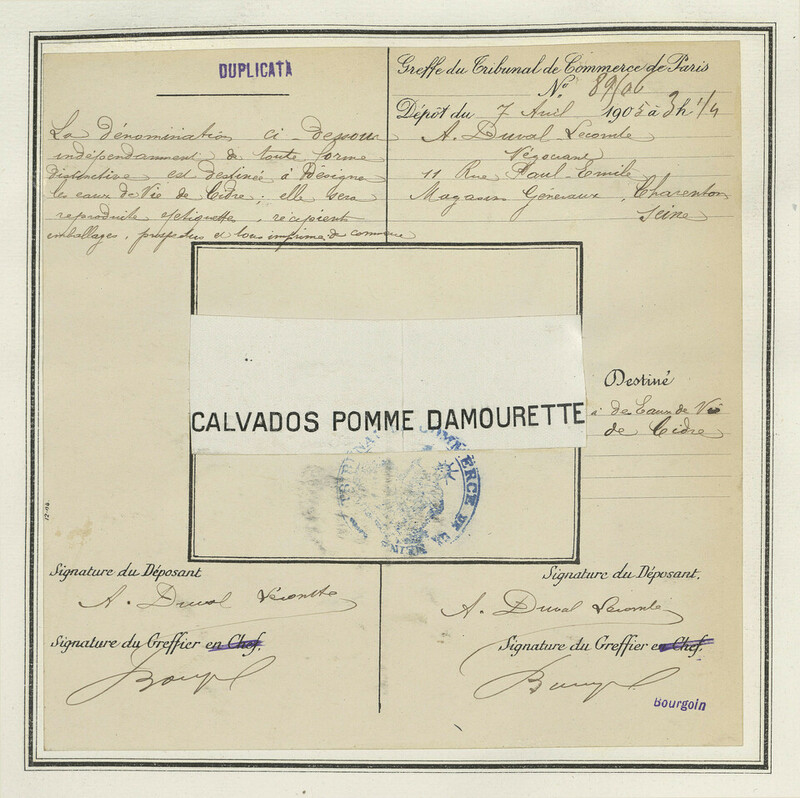 DUPLICATA
La dénomination ci dessous
indépendamment de toute forme
distinctive est destinée à désigner
les eaux de Vie de Cidre ; elle sera
reproduite étiquette, récipient
emballages, prospectus et tous imprimés de commerce
Greffe du Tribunal de Commerce de Paris
N° 89106
Dépôt du 7 Avril 1905 à 3h 1/4
A. Duval Lecomte
Négociant
11 Rue Paul-Emile
Magasins Généraux, Charenton
Seine
CALVADOS POMME DAMOURETTE
Destiné
à des Eaux de Vie
de Cidre
TRIBUNAL DE COMMERCE DE LA SEINE
12-04
Signature du Déposant
A. Duval Lecomte
Signature du Greffier en Chef.
Signature du Déposant.
A. Duval Lecomte
Signature du Greffier en Chef.
Bourgoin